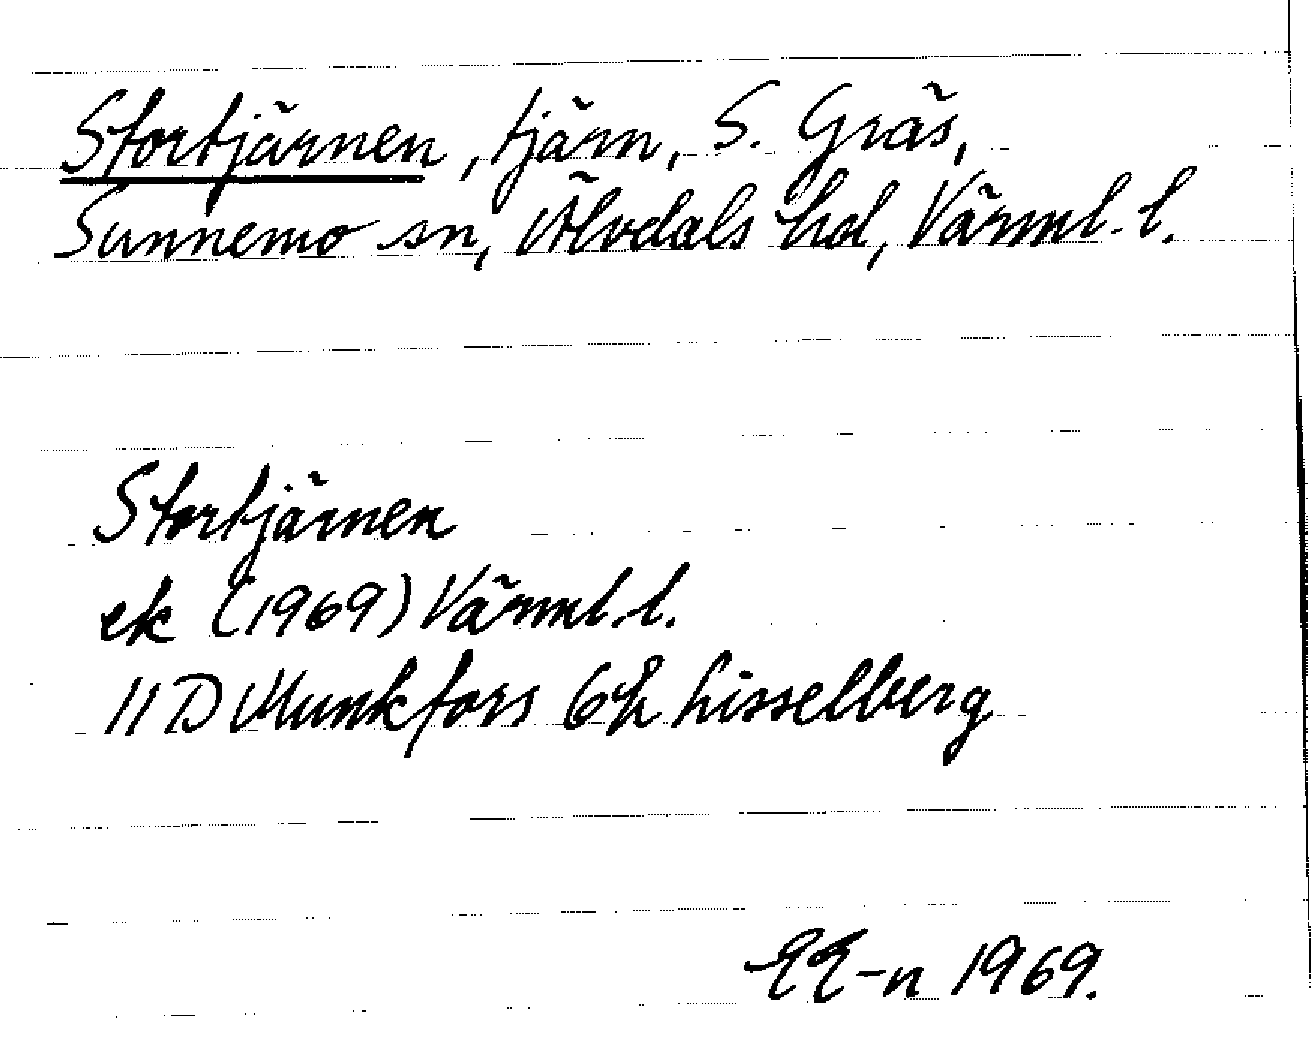 Stortjärnen, tjärn, S. Gräs,
Sunnemo sn, Älvdals hd, Värml. l.
Stortjärnen
ek (1969) Värml. l.
11 D Munkfors 6h Lisselberg
EE-n 1969.